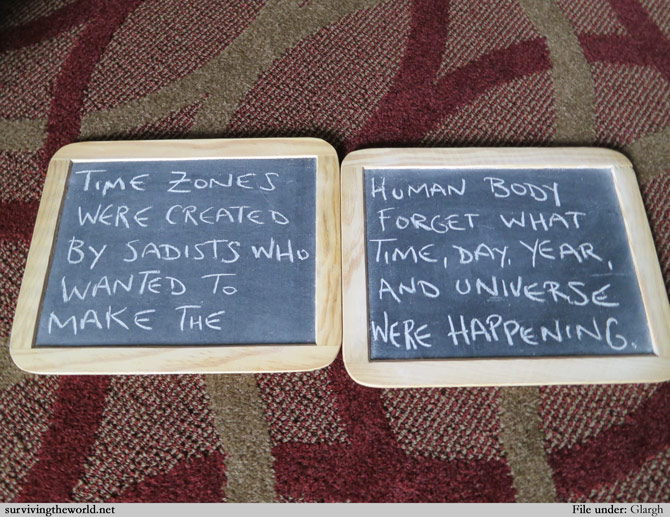 TIME ZONES
WERE CREATED
BY SADISTS WHO
WANTED TO
MAKE THE
HUMAN BODY
FORGET WHAT
TIME, DAY, YEAR,
AND UNIVERSE
WERE HAPPENING.
survivingtheworld.net
File under: Glargh